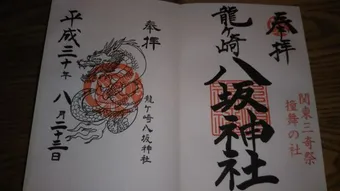 奉拝
関東三奇祭
撞舞の社
龍ヶ崎
八坂神社
奉拝
龍ヶ崎八坂神社
平成三十年
八月二十三日